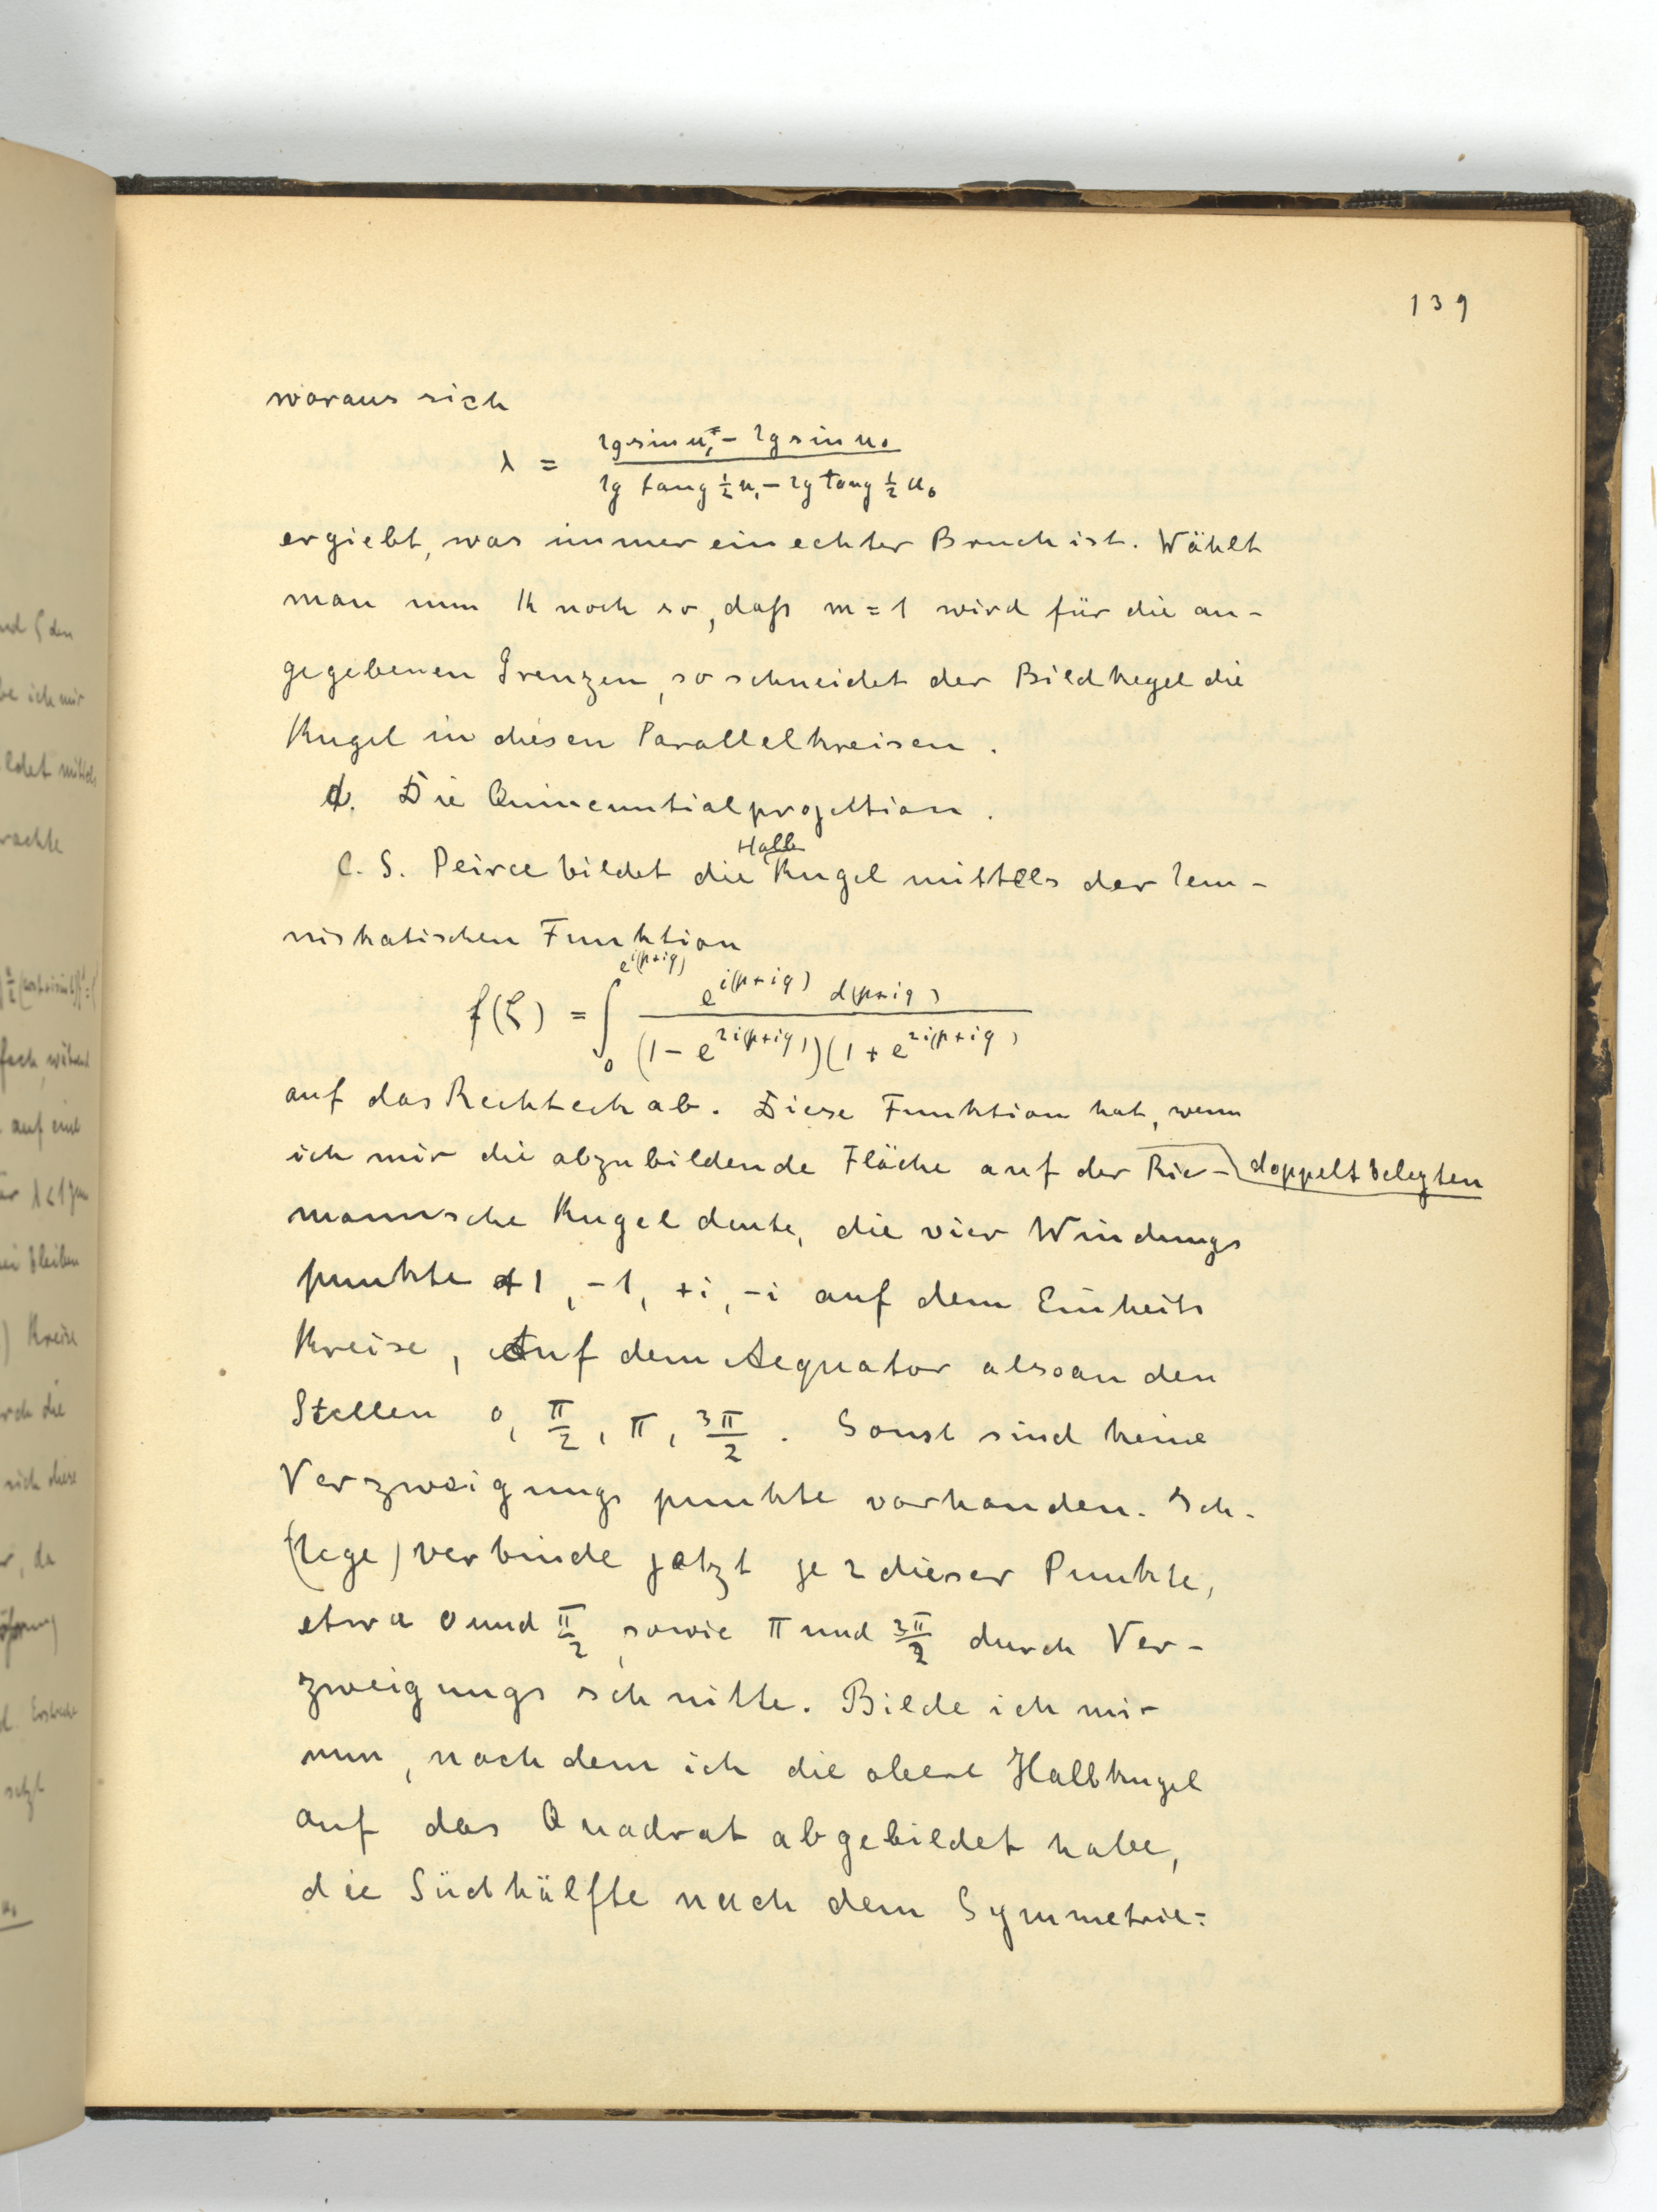 139
woraus sich
λ = (lg sin u₁ - lg sin u₀) / (lg tang ½ u₁ - lg tang ½ u₀)
ergiebt, was immer ein echter Bruch ist. Wählt
man nun k noch so, daß m = 1 wird für die an-
gegebenen Grenzen, so schneidet der Bildkegel die
Kugel in diesen Parallelkreisen.
d. Die Quincuntialprojektion.
Halb
C. S. Peirce bildet die Kugel mittels der lem-
niskatischen Funktion
f(ζ) = ∫₀^{e^{i(p+iq)}} e^{i(p+iq)} d(p+iq) / (1 - e^{2i(p+iq)})(1 + e^{2i(p+iq)})
auf das Rechteck ab. Diese Funktion hat, wenn
ich mir die abzubildende Fläche auf der Rie- doppelt belegten
mannsche Kugel deute, die vier Windungs
punkte +1, -1, +i, -i auf dem Einheits
Kreise, auf dem Aequator also an den
Stellen 0, π/2, π, 3π/2. Sonst sind keine
Verzweigungs punkte vorhanden. Ich
(lege) verbinde jetzt je 2 dieser Punkte,
etwa 0 und π/2, sowie π und 3π/2 durch Ver-
zweigungs schnitte. Bilde ich mir
nun, nach dem ich die obere Halbkugel
auf das Quadrat abgebildet habe,
die Südhälfte nach dem Symmetrie=
und ζ den
be ich mir
ildet mittels
rachte
auf eine
bleiben
) Kreise
urch die
sich diese
r, da
setzt